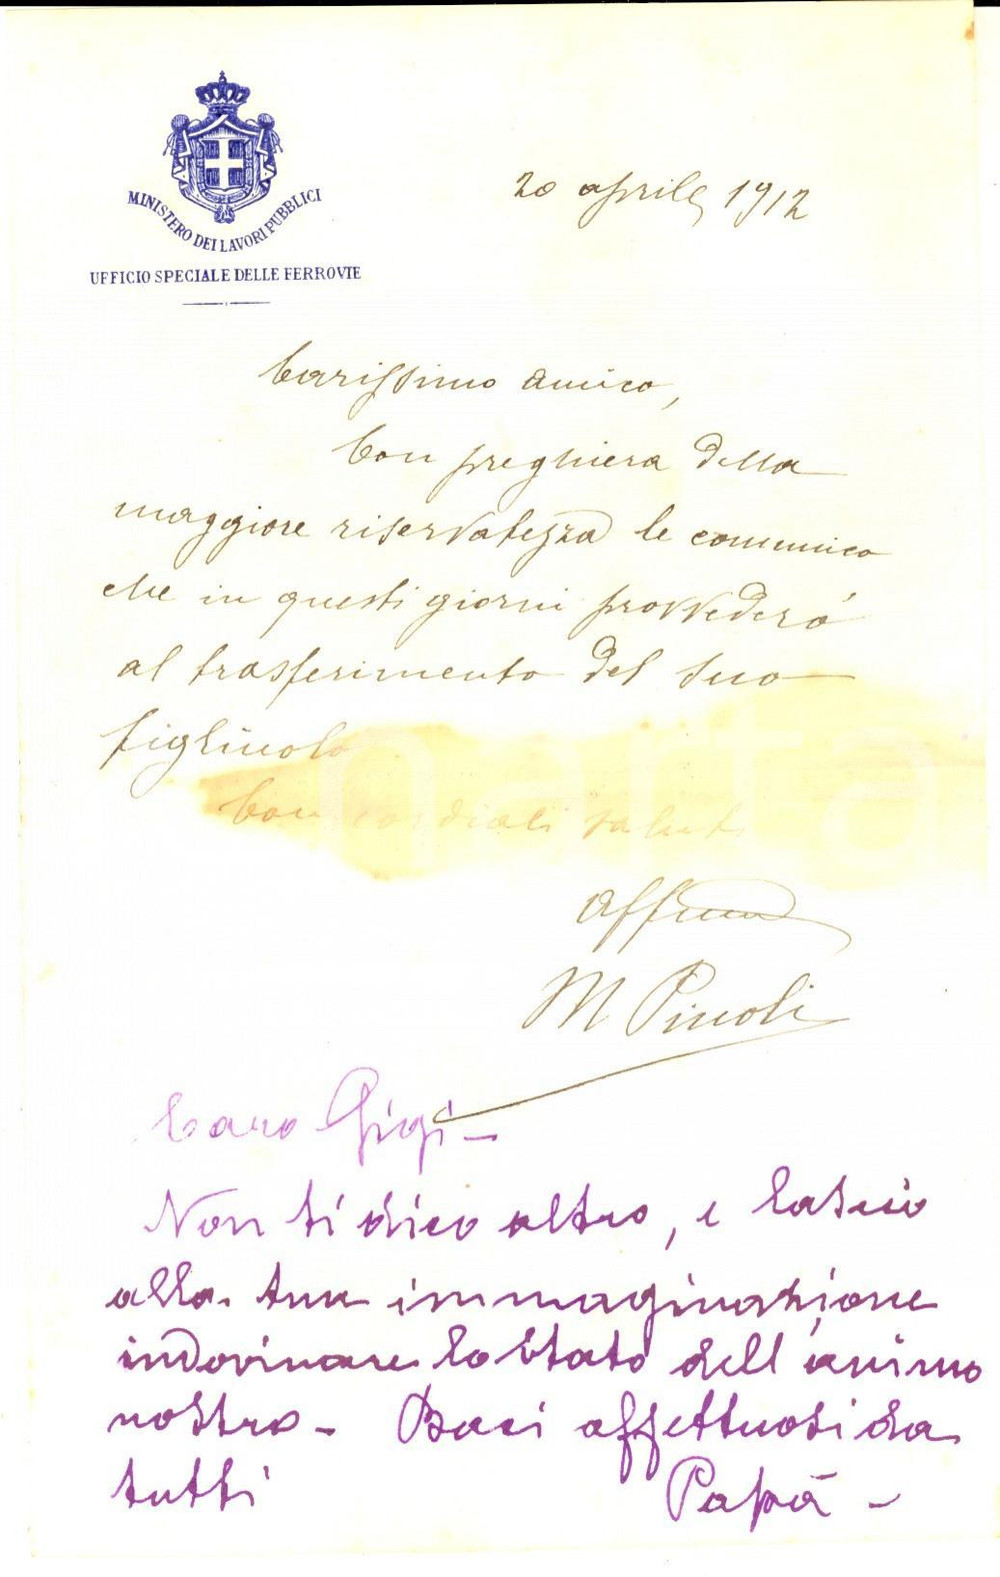 MINISTERO DEI LAVORI PUBBLICI
UFFICIO SPECIALE DELLE FERROVIE
20 aprile 1912
Carissimo amico,
Con preghiera della
maggiore riservatezza le comunico
che in questi giorni provvederò
al trasferimento del suo
figliuolo
Con cordiali saluti
Affmo
M Pinoli
Caro Gigi -
Non ti dico altro, e lascio
alla tua immaginazione
indovinare lo stato dell'animo
nostro - Baci affettuosi da
tutti
Papà -